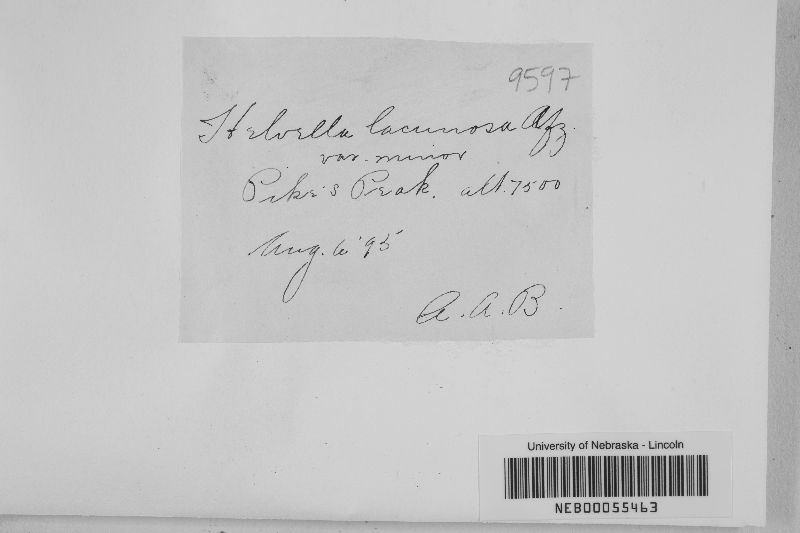 9597
Helvella lacunosa Afz.
var. minor
Pike's Peak. alt. 7500
Aug. 6 '95
A. A. B.
University of Nebraska - Lincoln
NEB00055463